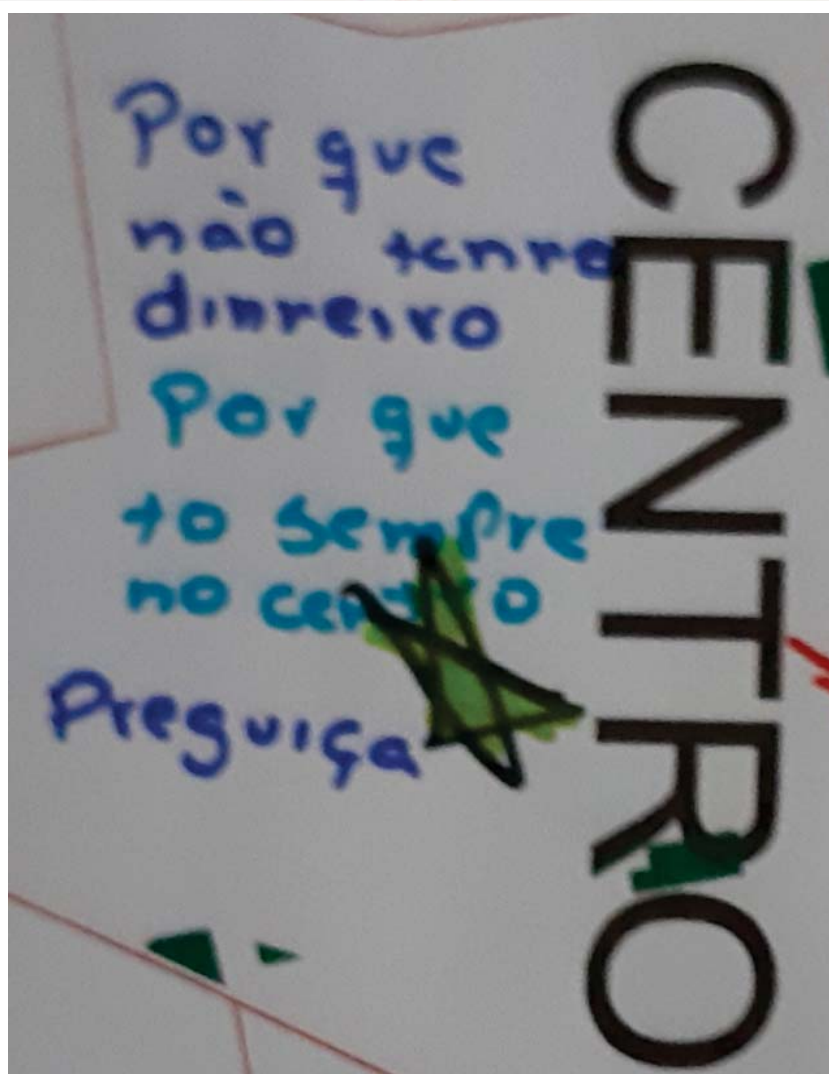 Por que
não tenho
dinheiro
Por que
to sempre
no centro
Preguiça
CENTRO